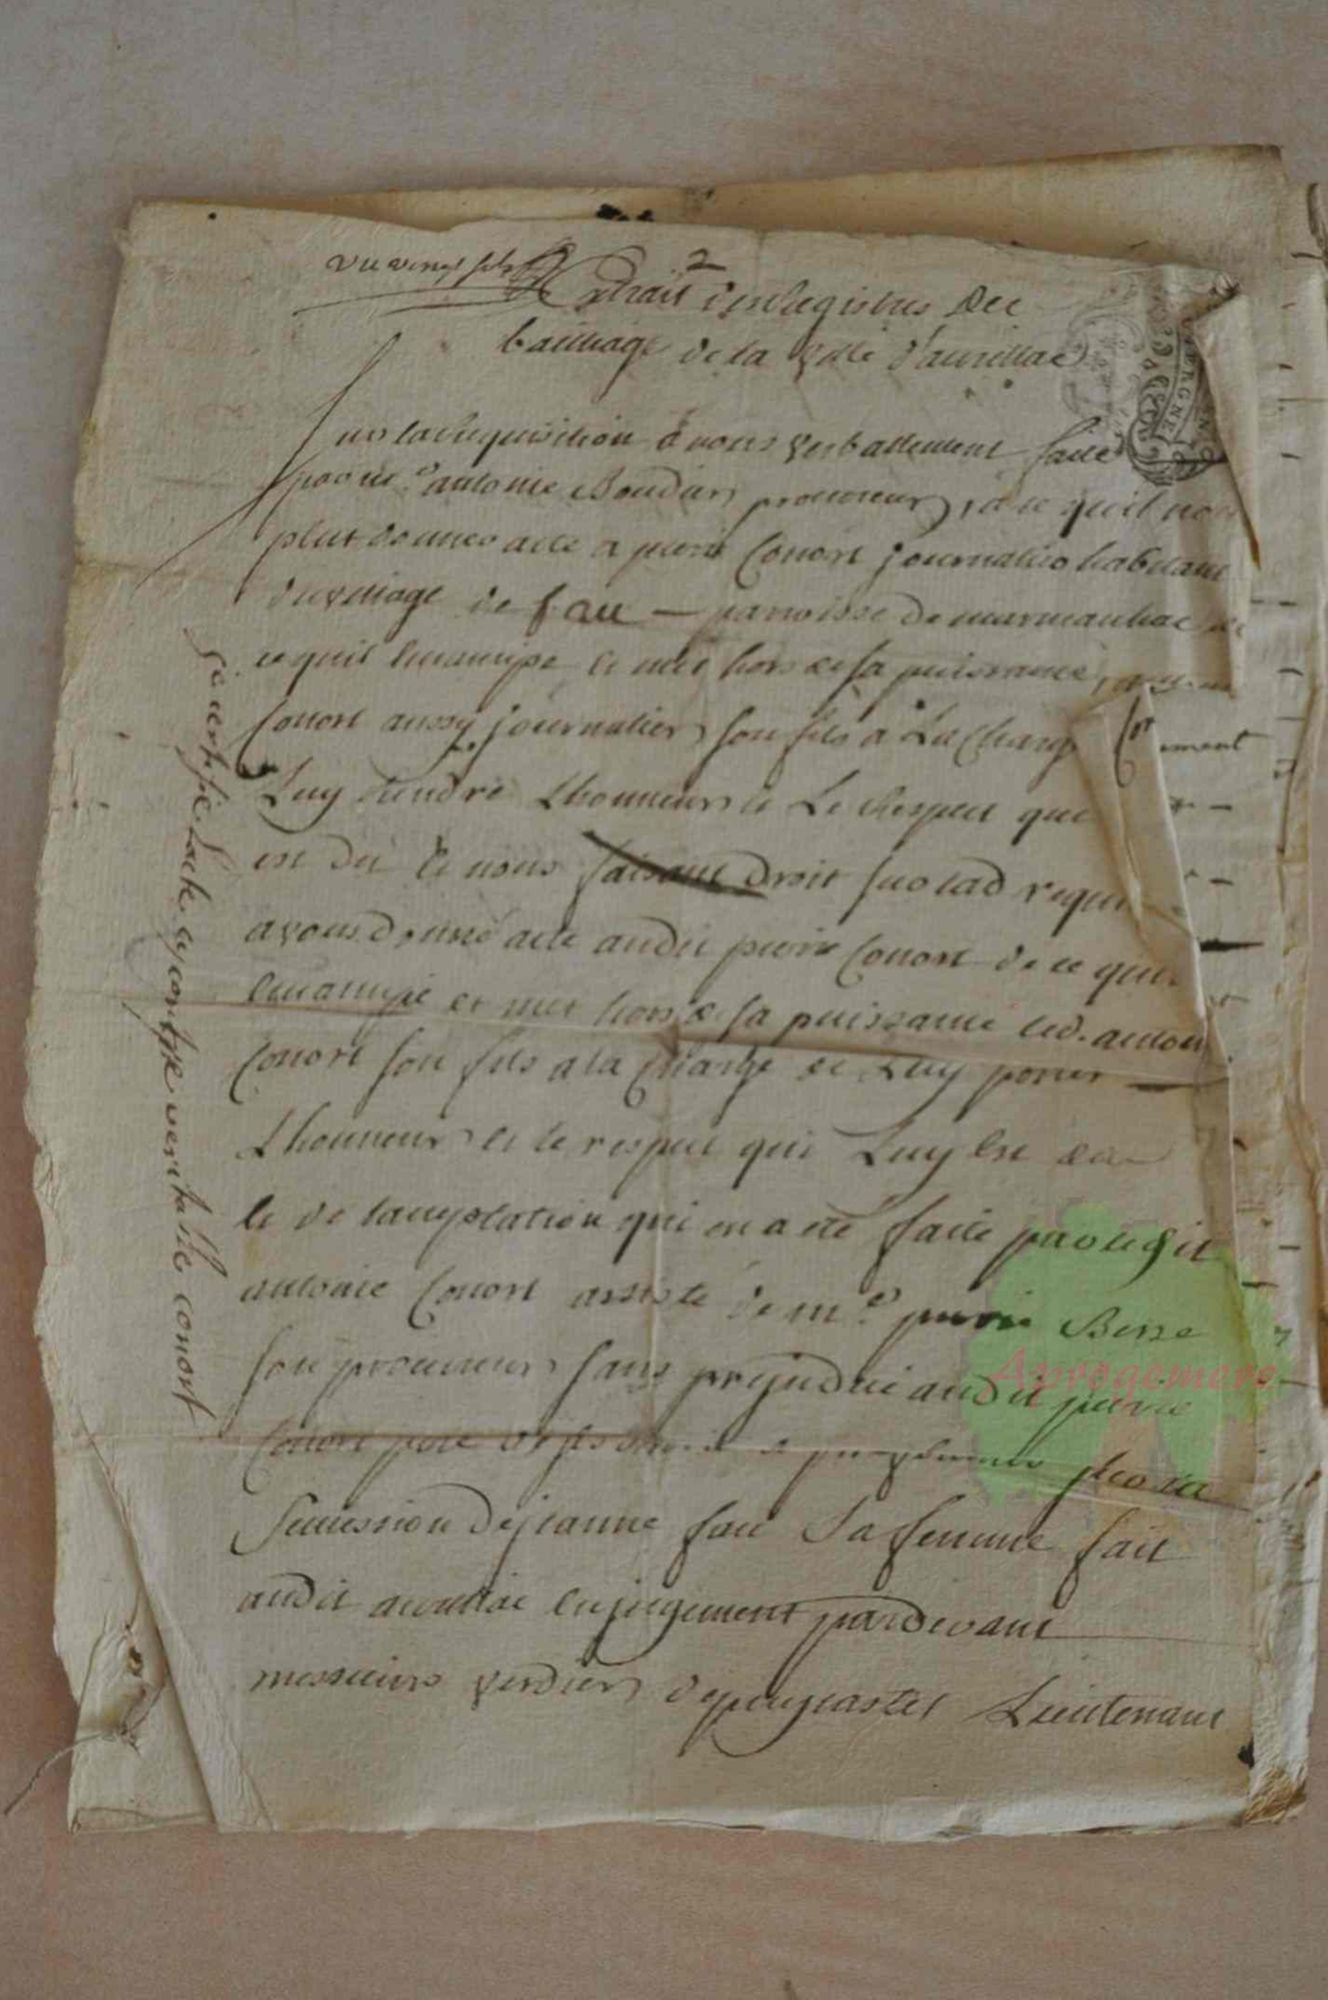 2
Extrait des Registres du
bailliage de la ville d'aurillac
Sur la requisition a nous verballement faite
par me antoine Boudier procureur, a ce qu'il nous
plut donner acte a pierre Conort journalier habitant
du village de fau — parroisse de marmanhac de
ce quil emancipe et met hors de sa puissance,
Conort aussy journalier son fils a La Charge
Luy Rendre Lhonneur et Le Respect que
est du Et nous faisant droit sur lad requi
avons donné acte audit pierre Conort de ce quil
emancipe et met hors de sa puissance led. antoine
Conort son fils a la Charge de Luy porter
Lhonneur et le respect qui Luy Est du
et de lacceptation qui en a été faite par ledit
antoine Conort assisté de me pierre Besse
son procureur sans prejudice audit pierre
Conort pere de ses droits sur la
Sucession de jeanne fau Sa femme fait
audit aurillac en jugement pardevant
messieurs verdier de puycastel Lieutenant
je certifie Lacte cy contre veritable conort
AUVERGNE
Aprogemere